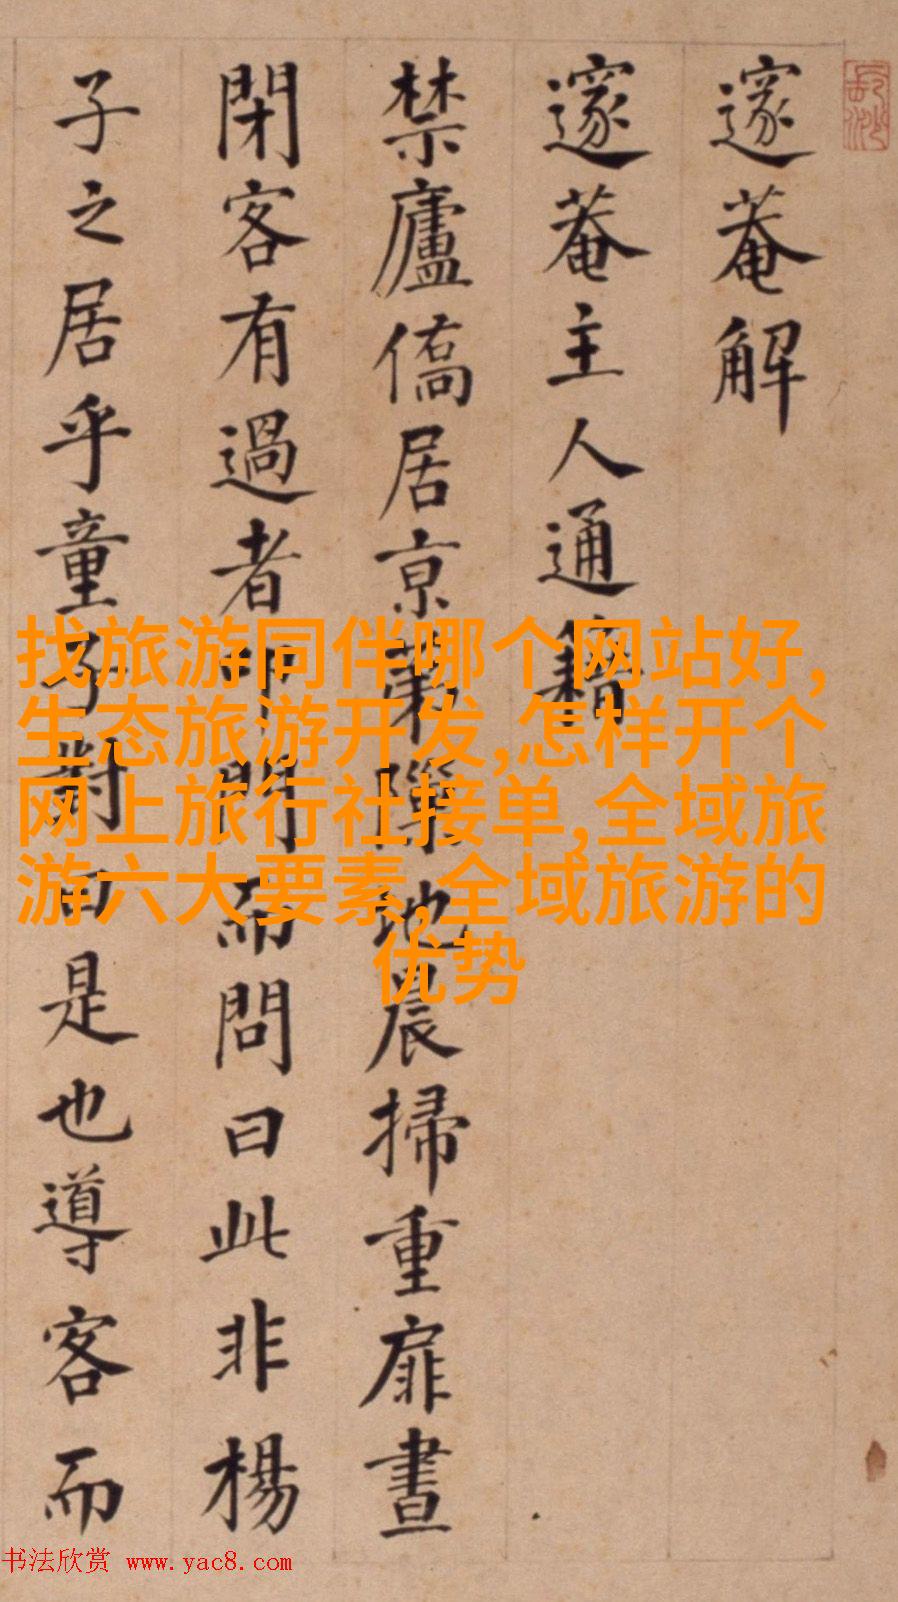 邃菴解
邃菴主人通籍
禁廬僑居京第隙地晨掃重扉晝
閉客有過者叩門而問曰此非楊
子之居乎童子對曰是也導客而
找旅游同伴哪个网站好,
生态旅游开发,怎样开个
网上旅行社接单,全域旅
游六大要素,全域旅游的
优势
书法欣赏 www.yac8.com